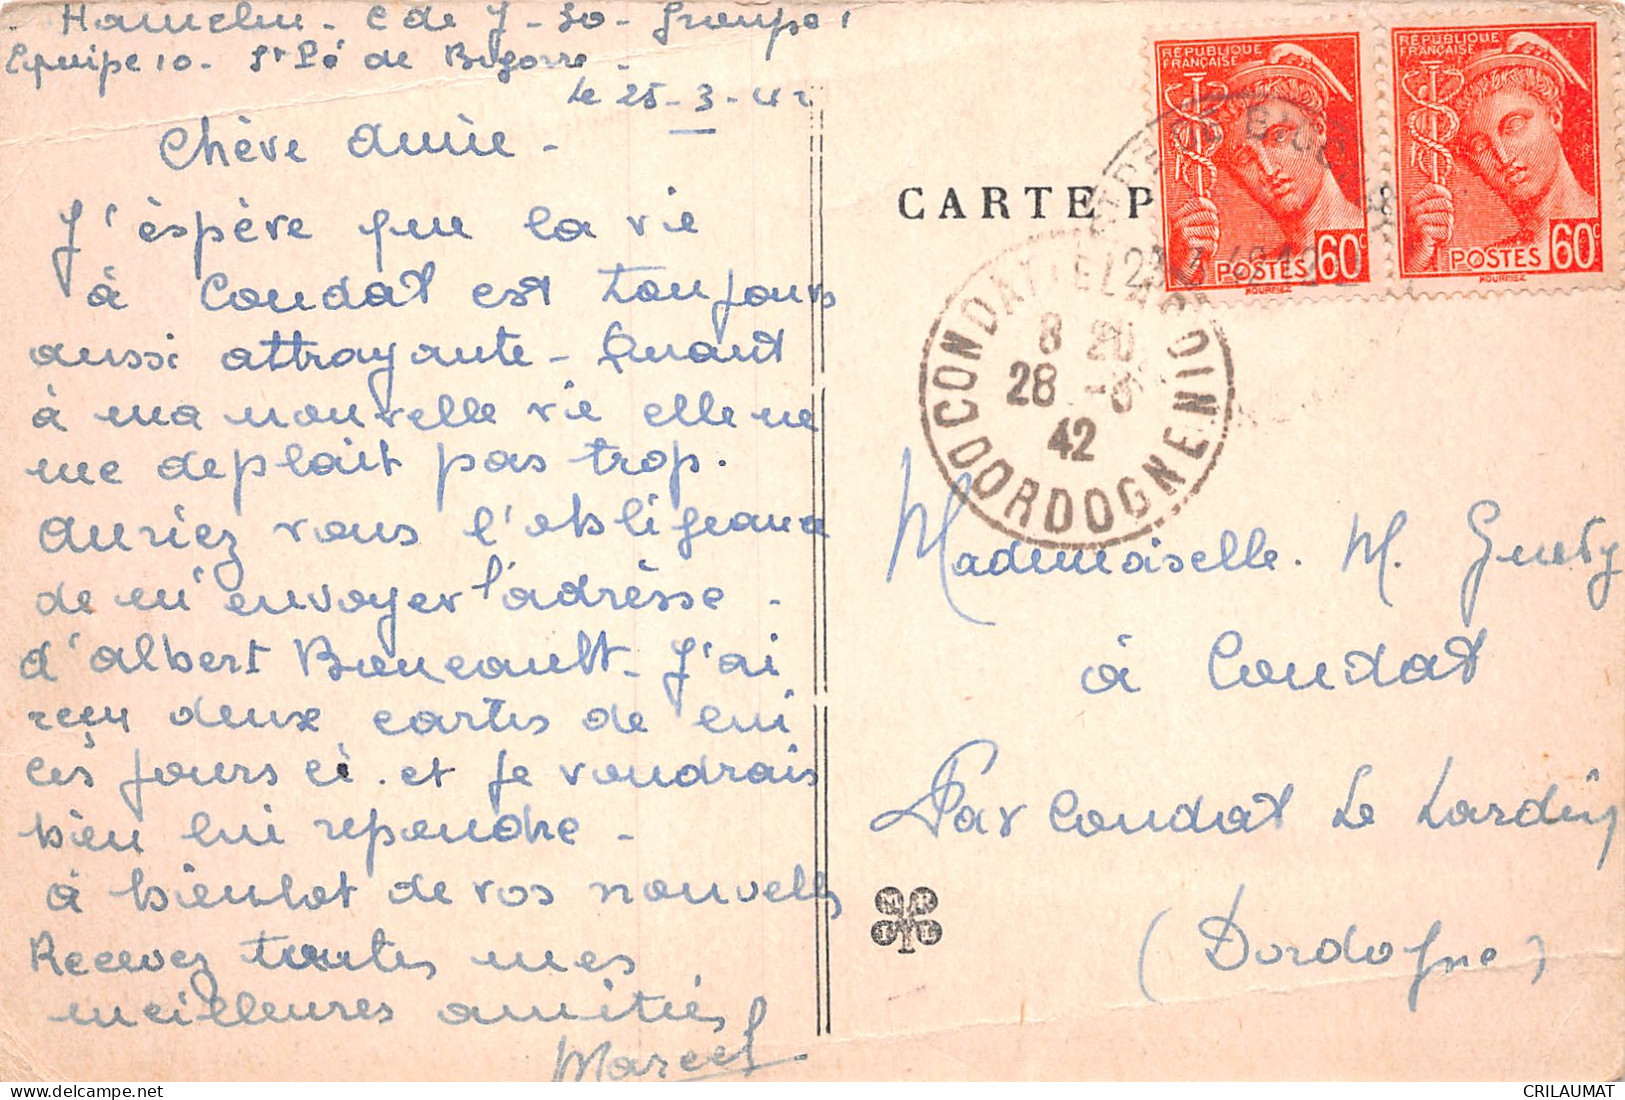 Hamelin - C de J - 30 - Groupe 1
Equipe 10 - St Pé de Bigorre -
Le 25-3-42
Chère amie -
J'éspère que la vie
à Condat est toujours
aussi attrayante - Quant
à ma nouvelle vie elle ne
me deplait pas trop.
Auriez vous l'obligeance
de m'envoyer l'adrèsse -
d'Albert Boucault - J'ai
reçu deux cartes de lui
ces jours ci . et je voudrais
bien lui repondre -
à bientot de vos nouvelles
Recevez toutes mes
meilleures amitiés
Marcel
CARTE P
REPUBLIQUE FRANÇAISE
POSTES 60c
REPUBLIQUE FRANÇAISE
POSTES 60c
CONDAT
8 20
28 -3
42
DORDOGNE
Mademoiselle. M. Guedy
à Condat
Par Condat Le Lardin
(Dordogne)
M R
L
CRILAUMAT